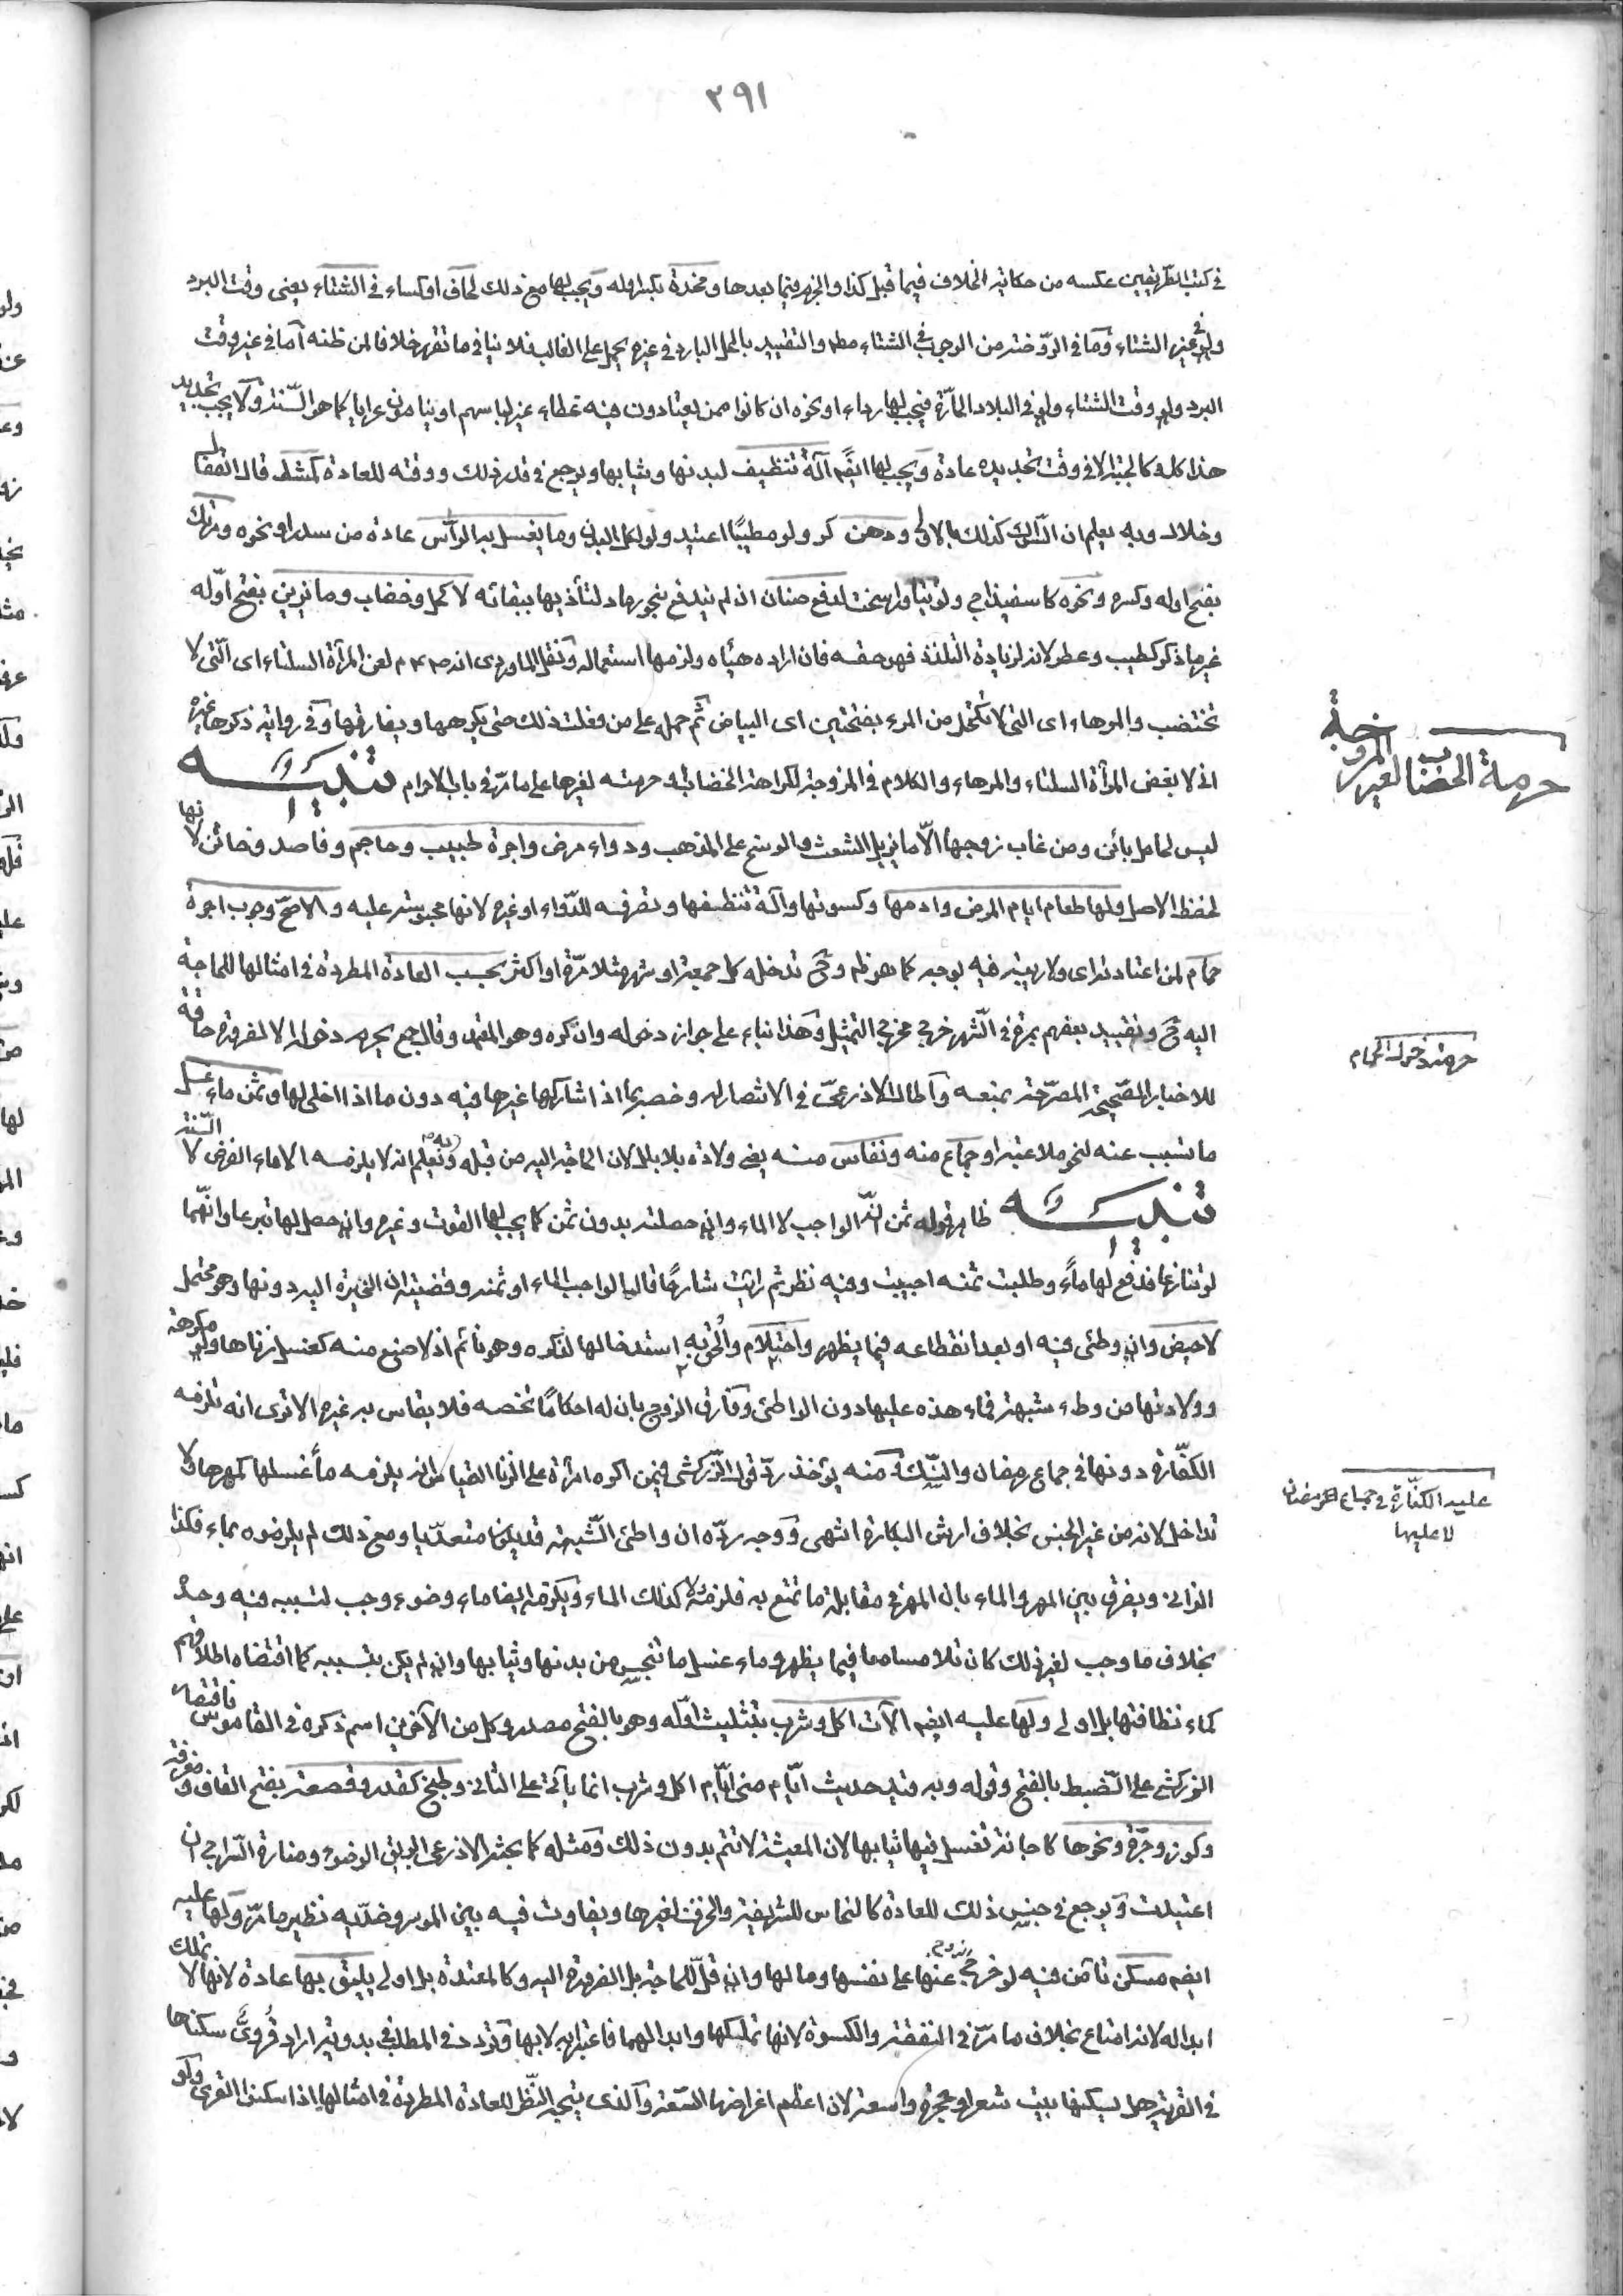 ٢٩١
في كتب الطريقين عكسه من حكاية الخلاف فيما قبل كذا والجزم فيما بعدها ومخدة بكسر اوله ويجب لها مع ذلك لحاف اوكساء في الشتاء يعنى وقت البرد
ولو في غير الشتاء وما في الروضة من الوجوب في الشتاء مطم والتقييد بالمحل البارد في غيره يحمل على الغالب فلا ينافى ما تقرر خلافا لمن ظنه اما في غير وقت
البرد ولو وقت الشتاء ولو في البلاد الحارة فيجب لها رداء او نحوه ان كانوا ممن يعتادون فيه غطاء غير لباسهم او ينامون عرايا كما هو السنة ولا يجب تجديد
هذا كله كالجبة الا في وقت تجديده عادة ويجب لها ايضا آلة تنظيف لبدنها وثيابها ويرجع في قدر ذلك ووقته للعادة كمشط قال القفال
وخلال وبه يعلم ان السواك كذلك بالاولى ودهن كزيت ولو مطيبا اعتيد ولو لكل البدن وما يغسل به الرأس عادة من سدر او نحوه ومرتك
بفتح اوله وكسره ونحوه كاسفيذاج ولو تيناول سخت لدفع صنان ان لم يندفع بنحو رماد لتأذيها ببقائه لا كحل وخضاب وما تزين بفتح اوله
غير ما ذكر كطيب وعطر لانه لزيادة التلذذ فهو حقه فان اراده هيأه ولزمها استعماله ونقل الماوردى انه صم لعن المرأة السلتاء اى التى لا
تختضب والمرهاء اى التى لا تكتحل من المره بفتحتين اى البياض ثم حمله على من فعلت ذلك حتى يكرهها ويفارقها وفي رواية ذكرها غيره
انى لابغض المرأة السلتاء والمرهاء والكلام في المزوجة لكراهة الخضاب او حرمته لغيرها على ما مر في باب الاحرام تنبيه
حرمة الخضاب لغير المزوجة
ليس لحامل بائن ومن غاب زوجها الا ما يزيل الشعث والوسخ على المذهب ودواء مرض واجرة طبيب وحاجم وفاصد وخاتن لانها
لحفظ الاصل ولها طعام ايام المرض وادمها وكسوتها وآلة تنظيفها وتصرفه للدواء او غيره لانها محبوسة عليه والاصح وجوب اجرة
حمام لمن اعتادته اى ولا ريبة فيه بوجه كما هو ظم وح تدخله كل جمعة او شهر مثلا مرة او اكثر بحسب العادة المطردة في امثالها للحاجة
اليه ح وتقييد بعضهم بمرة في الشهر خرج مخرج التمثيل وهذا بناء على جواز دخوله وان كره وهو المعتمد وقال جمع يحرم دخوله الا لضرورة حاقة
حرمة دخول الحمام
للاخبار الصحيحة المصرحة بمنعه واطال الاذرعى في الانتصار له وخصه بما اذا شاركها غيرها فيه دون ما اذا اخلى لها وثمن ماء غسل
ما تسبب عنه لنحو ملاعبة او جماع منه ونفاس منه يعنى ولادة بلا بلل لان الحاجة اليه من قبله وبه يعلم انه لا يلزمه الا ماء الفرض لا السنة
تنبيه ظاهر قوله ثمن انه الواجب لا الماء وان حصلته بدون ثمن كما يجب لها القوت وغيره وان حصل لها تبرعا وانهما
لو تنازعا فدفع لها ماءً وطلبت ثمنه اجيبت وفيه نظر ثم رأيت شارحًا قال الواجب الماء او ثمنه وقضيته ان الخيرة اليه دونها وهو محتمل
لا حيض وان وطئ فيه او بعد انقطاعه فيما يظهر واحتلام والحق به استدخالها لذكره وهو نائم اذ لا صنع منه كغسل زناها ولو مكرهة
وولادتها من وطء شبهة فماء هذه عليها دون الواطئ وفارق الزوج بان له احكامًا تخصه فلا يقاس به غيره الا ترى انه تلزمه
الكفارة دونها في جماع رمضان والنسك ومنه يؤخذ رد قول الزركشى فيمن اكره امرأة على الزنا القياس انه يلزمه ماء غسلها كمهرها ولا
عليه الكفارة في جماع رمضان
لا عليها
تداخل لانه من غير الجنس بخلاف ارش البكارة انتهى ووجه رده ان واطئ الشبهة قد يكون متعديا ومع ذلك لم يلزموه بماء فكذا
الزانى ويفرق بين المهر والماء بان المهر في مقابلة ما تمتع به فلزمه ولا كذلك الماء ويلزمه ايضا ماء وضوء وجب لتسببه فيه وحده
بخلاف ما وجب لغير ذلك كان تلامسا معا فيما يظهر وماء غسل ما تنجس من بدنها وثيابها وان لم يكن بتسببه كما اقتضاه اطلاقهم
كماء نظافتها بل اولى ولها عليه ايضم آلات اكل وشرب بتثليث اوله وهو بالفتح مصدر وكل من الآخرين اسم ذكره في القاموس فاقتصار
الزركشى على الضبط بالفتح وقوله وبه قيد حديث ايام منى ايام اكل وشرب انما يأتى على الثانى وطبخ كقدر وقصعة بفتح القاف ومغرفة
وكوز وجرة ونحوها كاجانة تغسل فيها ثيابها لان المعيشة لا تتم بدون ذلك ومثله كما بحثه الاذرعى ابريق الوضوء ومنارة السراج ان
اعتيدت ويرجع في جنس ذلك للعادة كالنحاس للشريفة والخزف لغيرها ويفاوت فيه بين الموسر وضديه نظير ما مر ولها عليه
ايضم مسكن تأمن فيه لو خرج زوجه عنها على نفسها ومالها وان قل للحاجة بل الضرورة اليه وكالمعتدة بل اولى يليق بها عادة لانها لا تملك
ابداله لانه امتاع بخلاف ما مر في النفقة والكسوة لانها تملكها وابدالهما فاعتبرا به لا بها وتردد في المطلب في بدوية اراد قروى سكناها
في القرية هل يسكنها بيت شعر او حجرة واسعة لان اعظم اغراضها السعة والذى يتجه النظر للعادة المطردة في امثالها اذا سكنوا القرى ولو